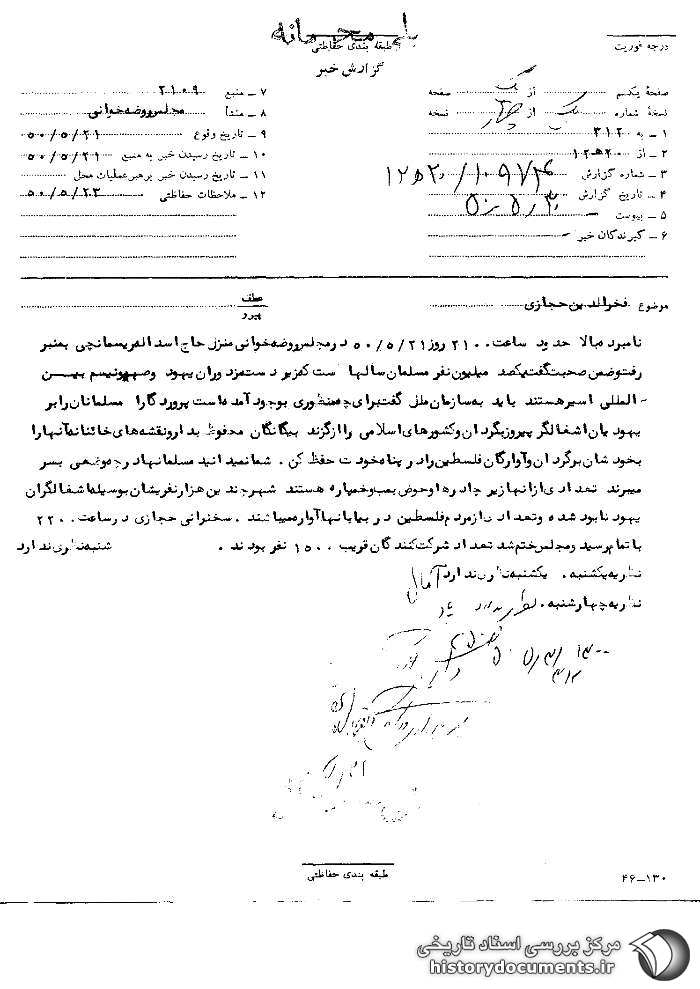 محرمانه
درجه فوریت
طبقه بندی حفاظتی
گزارش خبر
صفحهٔ یکم از یک صفحه
نسخهٔ شماره یک از چهار نسخه
۱ ـ به ۳۱۲
۲ ـ از ۲۰ ه‍ ۱۲
۳ ـ شماره گزارش ۱۰۹۷۴/۲۰ ه‍ ۱۲
۴ ـ تاریخ گزارش ۵۰/۵/۳۰
۵ ـ پیوست
۶ ـ گیرندگان خبر
۷ ـ منبع ۲۱۰۹
۸ ـ منشأ مجلس روضه خوانی
۹ ـ تاریخ وقوع ۵۰/۵/۲۱
۱۰ ـ تاریخ رسیدن خبر به منبع ۵۰/۵/۲۱
۱۱ ـ تاریخ رسیدن خبر برهبر عملیات محل
۱۲ ـ ملاحظات حفاظتی ۵۰/۵/۲۳
موضوع فخرالدین حجازی
عطف
پیرو
نامبرده بالا حدود ساعت ۲۱۰۰ روز ۵۰/۵/۲۱ در مجلس روضه خوانی منزل حاج اسداله ریسمانچی بمنبر
رفت و ضمن صحبت گفت یکصد میلیون نفر مسلمان سالها است که زیر دست مزدوران یهود و صهیونیسم بیــن
ـ المللی اسیر هستند باید به سازمان ملل گفت برای چه منظوری بوجود آمده است پروردگارا مسلمانان را بر
یهودیان اشغالگر پیروز بگردان و کشورهای اسلامی را از گزند بیگانگان محفوظ بدار و نقشه های خائنانه آنها را
بخودشان برگردان و آوارگان فلسطین را در پناه خودت حفظ کن . شما نمیدانید مسلمانها در چه وضعی بسر
میبرند تعدادی از آنها زیر چادرها و حوض بمب و خمپاره هستند شهر چندین هزار نفریشان بوسیله اشغالگران
یهود نابود شده و تعدادی از مردم فلسطین در بیابانها آواره میباشند . سخنرانی حجازی در ساعت ۲۲۰۰
باتمام رسید و مجلس ختم شد تعداد شرکت کنندگان قریب ۱۵۰۰ نفر بودند . شنبه نظری ندارد
نظریه یکشنبه . یکشنبه نظری ندارد
نظریه چهارشنبه .
۳۱۲
طبقه بندی حفاظتی
۴۶ـ۱۳۰
مرکز بررسی اسناد تاریخی
historydocuments.ir